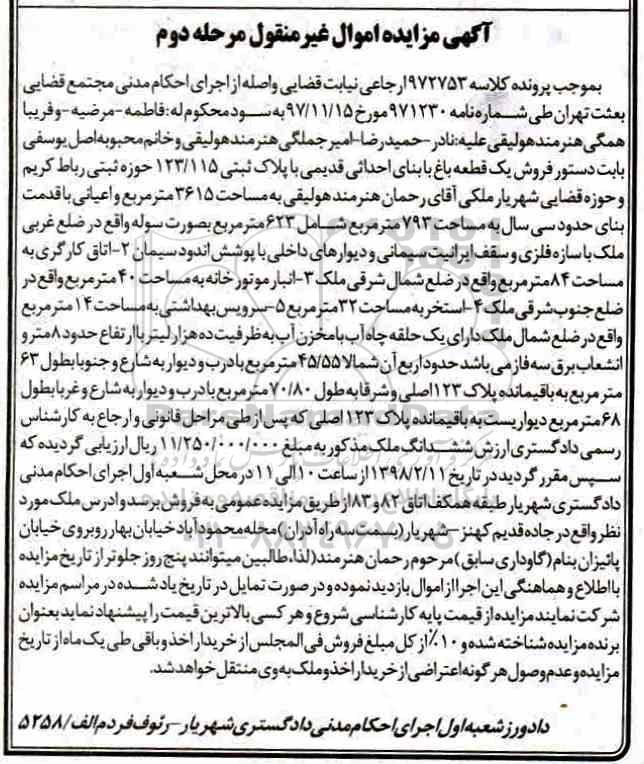 آگهی مزایده اموال غیر منقول مرحله دوم
بموجب پرونده کلاسه ۹۷۲۷۵۳ ارجاعی نیابت قضایی واصله از اجرای احکام مدنی مجتمع قضایی
بعثت تهران طی شماره نامه ۹۷۱۲۳۰ مورخ ۹۷/۱۱/۱۵ به سود محکوم له: فاطمه-مرضیه-و فریبا
همگی هنرمند هولیقی علیه: نادر-حمیدرضا-امیر جملگی هنرمند هولیقی و خانم محبوبه اصل یوسفی
بابت دستور فروش یک قطعه باغ با بنای احداثی قدیمی با پلاک ثبتی ۱۲۳/۱۱۵ حوزه ثبتی رباط کریم
و حوزه قضایی شهریار ملکی آقای رحمان هنرمند هولیقی به مساحت ۳۶۱۵ متر مربع و اعیانی با قدمت
بنای حدود سی سال به مساحت ۷۹۳ متر مربع شامل ۶۲۳ متر مربع بصورت سوله واقع در ضلع غربی
ملک با سازه فلزی و سقف ایرانیت سیمانی و دیوارهای داخلی با پوشش اندود سیمان ۲-اتاق کارگری به
مساحت ۸۴ متر مربع واقع در ضلع شمال شرقی ملک ۳-انبار موتور خانه به مساحت ۴۰ متر مربع واقع در
ضلع جنوب شرقی ملک ۴-استخر به مساحت ۳۲ متر مربع ۵-سرویس بهداشتی به مساحت ۱۴ متر مربع
واقع در ضلع شمال ملک دارای یک حلقه چاه آب با مخزن آب به ظرفیت ده هزار لیتر با ارتفاع حدود ۸ متر و
انشعاب برق سه فاز می باشد حدود اربع آن شمالا ۴۵/۵۵ متر مربع با درب و دیوار به شارع و جنوبا بطول ۶۳
متر مربع به باقیمانده پلاک ۱۲۳ اصلی و شرقا به طول ۷۰/۸۰ متر مربع با درب و دیوار به شارع و غربا بطول
۶۸ متر مربع دیواریست به باقیمانده پلاک ۱۲۳ اصلی که پس از طی مراحل قانونی و ارجاع به کارشناس
رسمی دادگستری ارزش ششدانگ ملک مذکور به مبلغ ۱۱/۲۵۰/۰۰۰/۰۰۰ ریال ارزیابی گردیده که
سپس مقرر گردید در تاریخ ۱۳۹۸/۲/۱۱ از ساعت ۱۰ الی ۱۱ در محل شعبه اول اجرای احکام مدنی
دادگستری شهریار طبقه همکف اتاق ۸۲ و ۸۳ از طریق مزایده عمومی به فروش برسد و ادرس ملک مورد
نظر واقع در جاده قدیم کهنز-شهریار (بسمت سه راه آدران) محله محمودآباد خیابان بهار روبروی خیابان
پائیزان بنام (گاوداری سابق) مرحوم رحمان هنرمند (لذا، طالبین میتوانند پنج روز جلوتر از تاریخ مزایده
با اطلاع و هماهنگی این اجرا از اموال بازدید نموده و در صورت تمایل در تاریخ یاد شده در مراسم مزایده
شرکت نمایند مزایده از قیمت پایه کارشناسی شروع و هر کسی بالاترین قیمت را پیشنهاد نماید بعنوان
برنده مزایده شناخته شده و ۱۰٪ از کل مبلغ فروش فی المجلس از خریدار اخذ و باقی طی یک ماه از تاریخ
مزایده و عدم وصول هرگونه اعتراضی از خریدار اخذ و ملک به وی منتقل خواهد شد.
دادورز شعبه اول اجرای احکام مدنی دادگستری شهریار-رئوف فرد م الف/۵۲۵۸
ParsNamadData